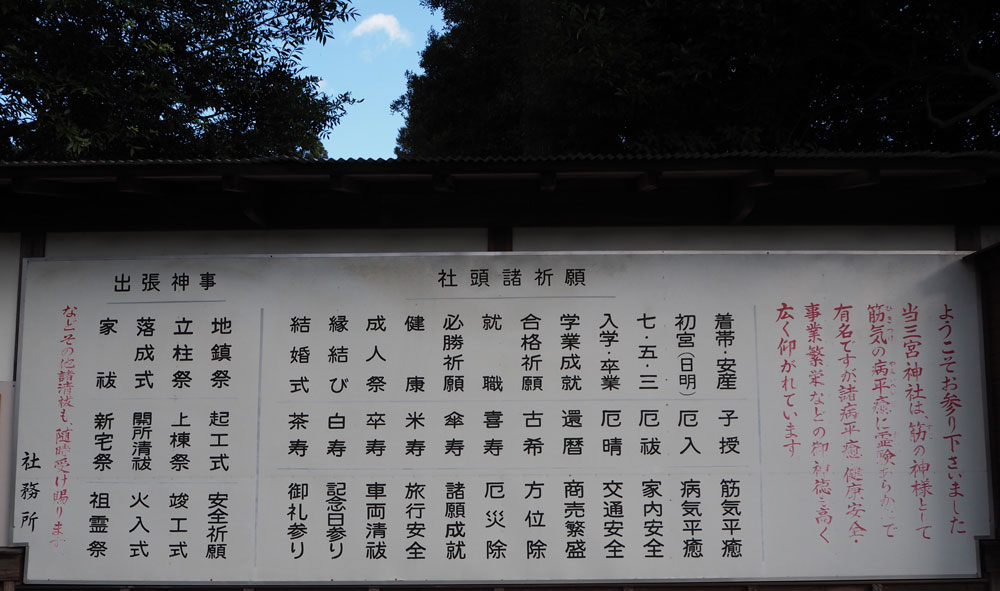 ようこそお参り下さいました
当三宮神社は、筋の神様として
筋気の病平癒に霊験あらたかで
有名ですが諸病平癒、健康、安全・
事業繁栄などの御神徳も高く
広く仰がれています
社頭諸祈願
着帯・安産
初宮（日明）
七・五・三
入学・卒業
学業成就
合格祈願
就職
必勝祈願
健康
成人祭
縁結び
結婚式
子授
厄入
厄祓
厄晴
還暦
古希
喜寿
傘寿
米寿
卒寿
白寿
茶寿
筋気平癒
病気平癒
家内安全
交通安全
商売繁盛
方位除
厄災除
諸願成就
旅行安全
車両清祓
記念日参り
御礼参り
出張神事
地鎮祭
立柱祭
落成式
家祓
起工式
上棟祭
開所清祓
新宅祭
安全祈願
竣工式
火入式
祖霊祭
などその他諸清祓も、随時受け賜ります
社務所